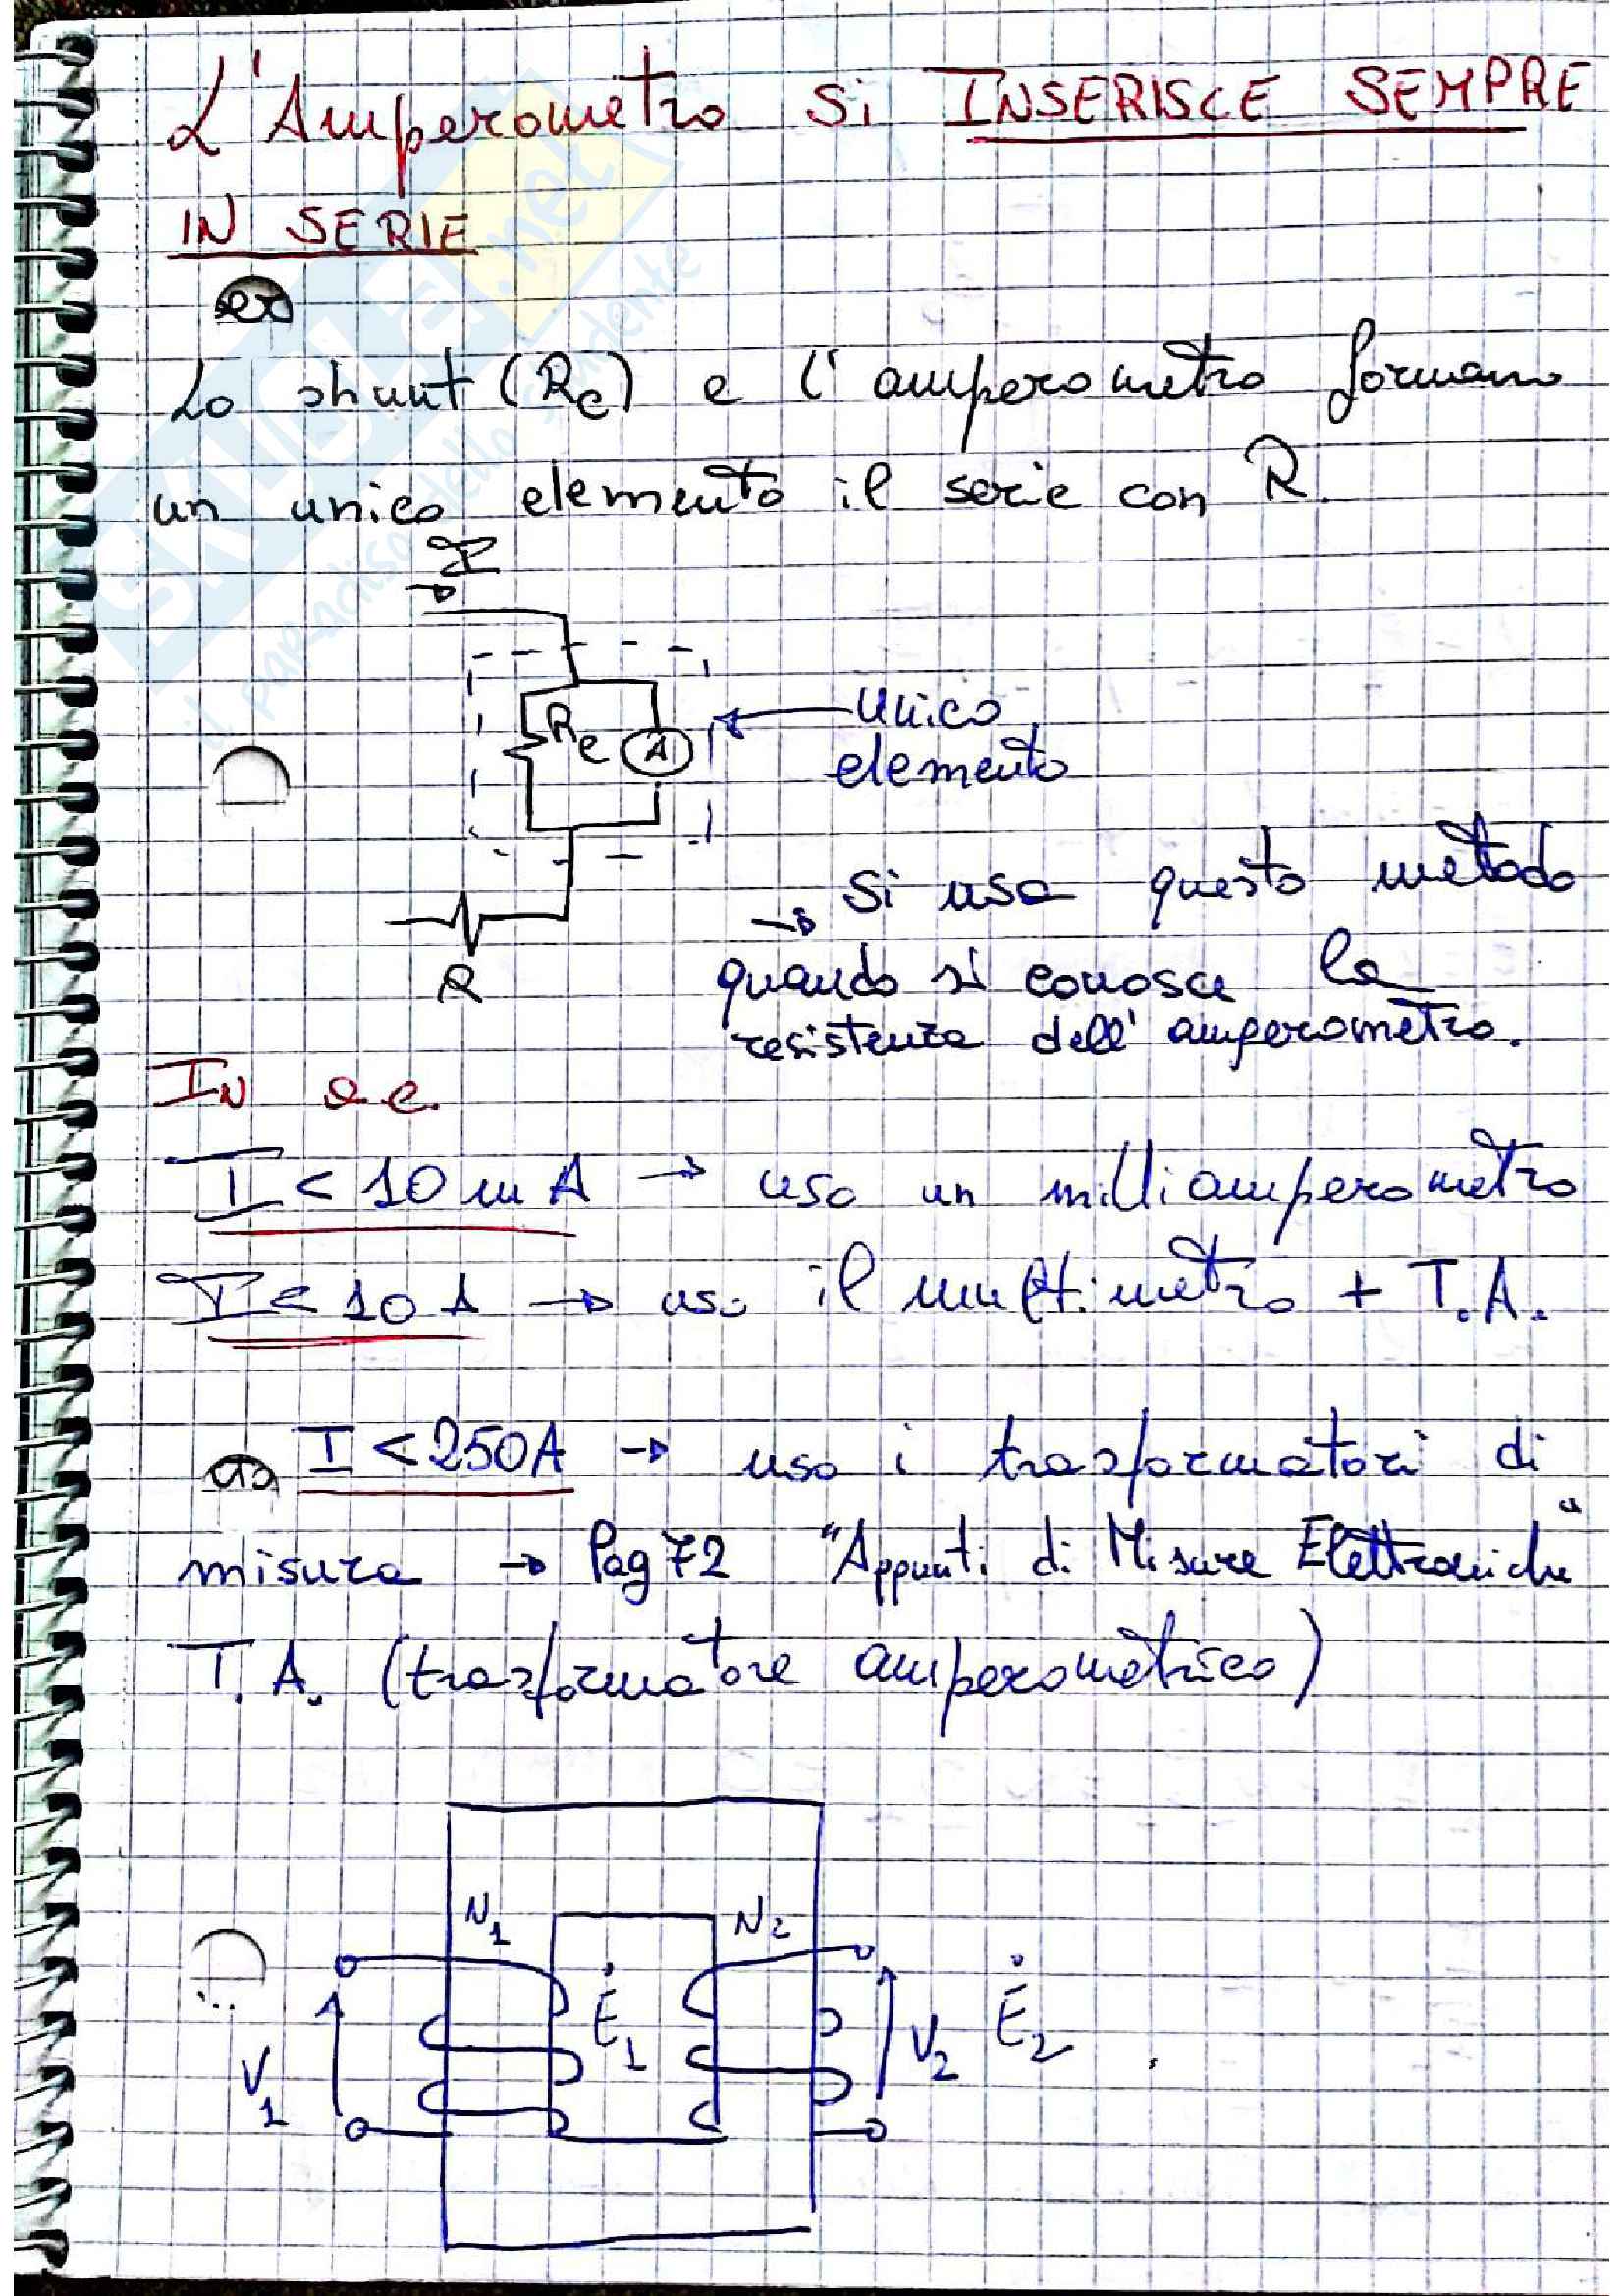 L'Amperometro si INSERISCE SEMPRE
IN SERIE
Lo shunt (Rc) e l'amperometro formano
un unico elemento il serie con R.
I
Rc A
unico
elemento
R
→ si usa questo metodo
quando si conosce la
resistenza dell'amperometro.
IN a.c.
I < 10 mA → uso un milliamperometro
I < 10 A → uso il multimetro + T.A.
I < 250A → uso i trasformatori di
misura → Pag 72 "Appunti di Misure Elettroniche"
T.A. (trasformatore amperometrico)
N1 N2
V1 Ė1 V2 Ė2
SKUOLA.net
il paradiso dello studente